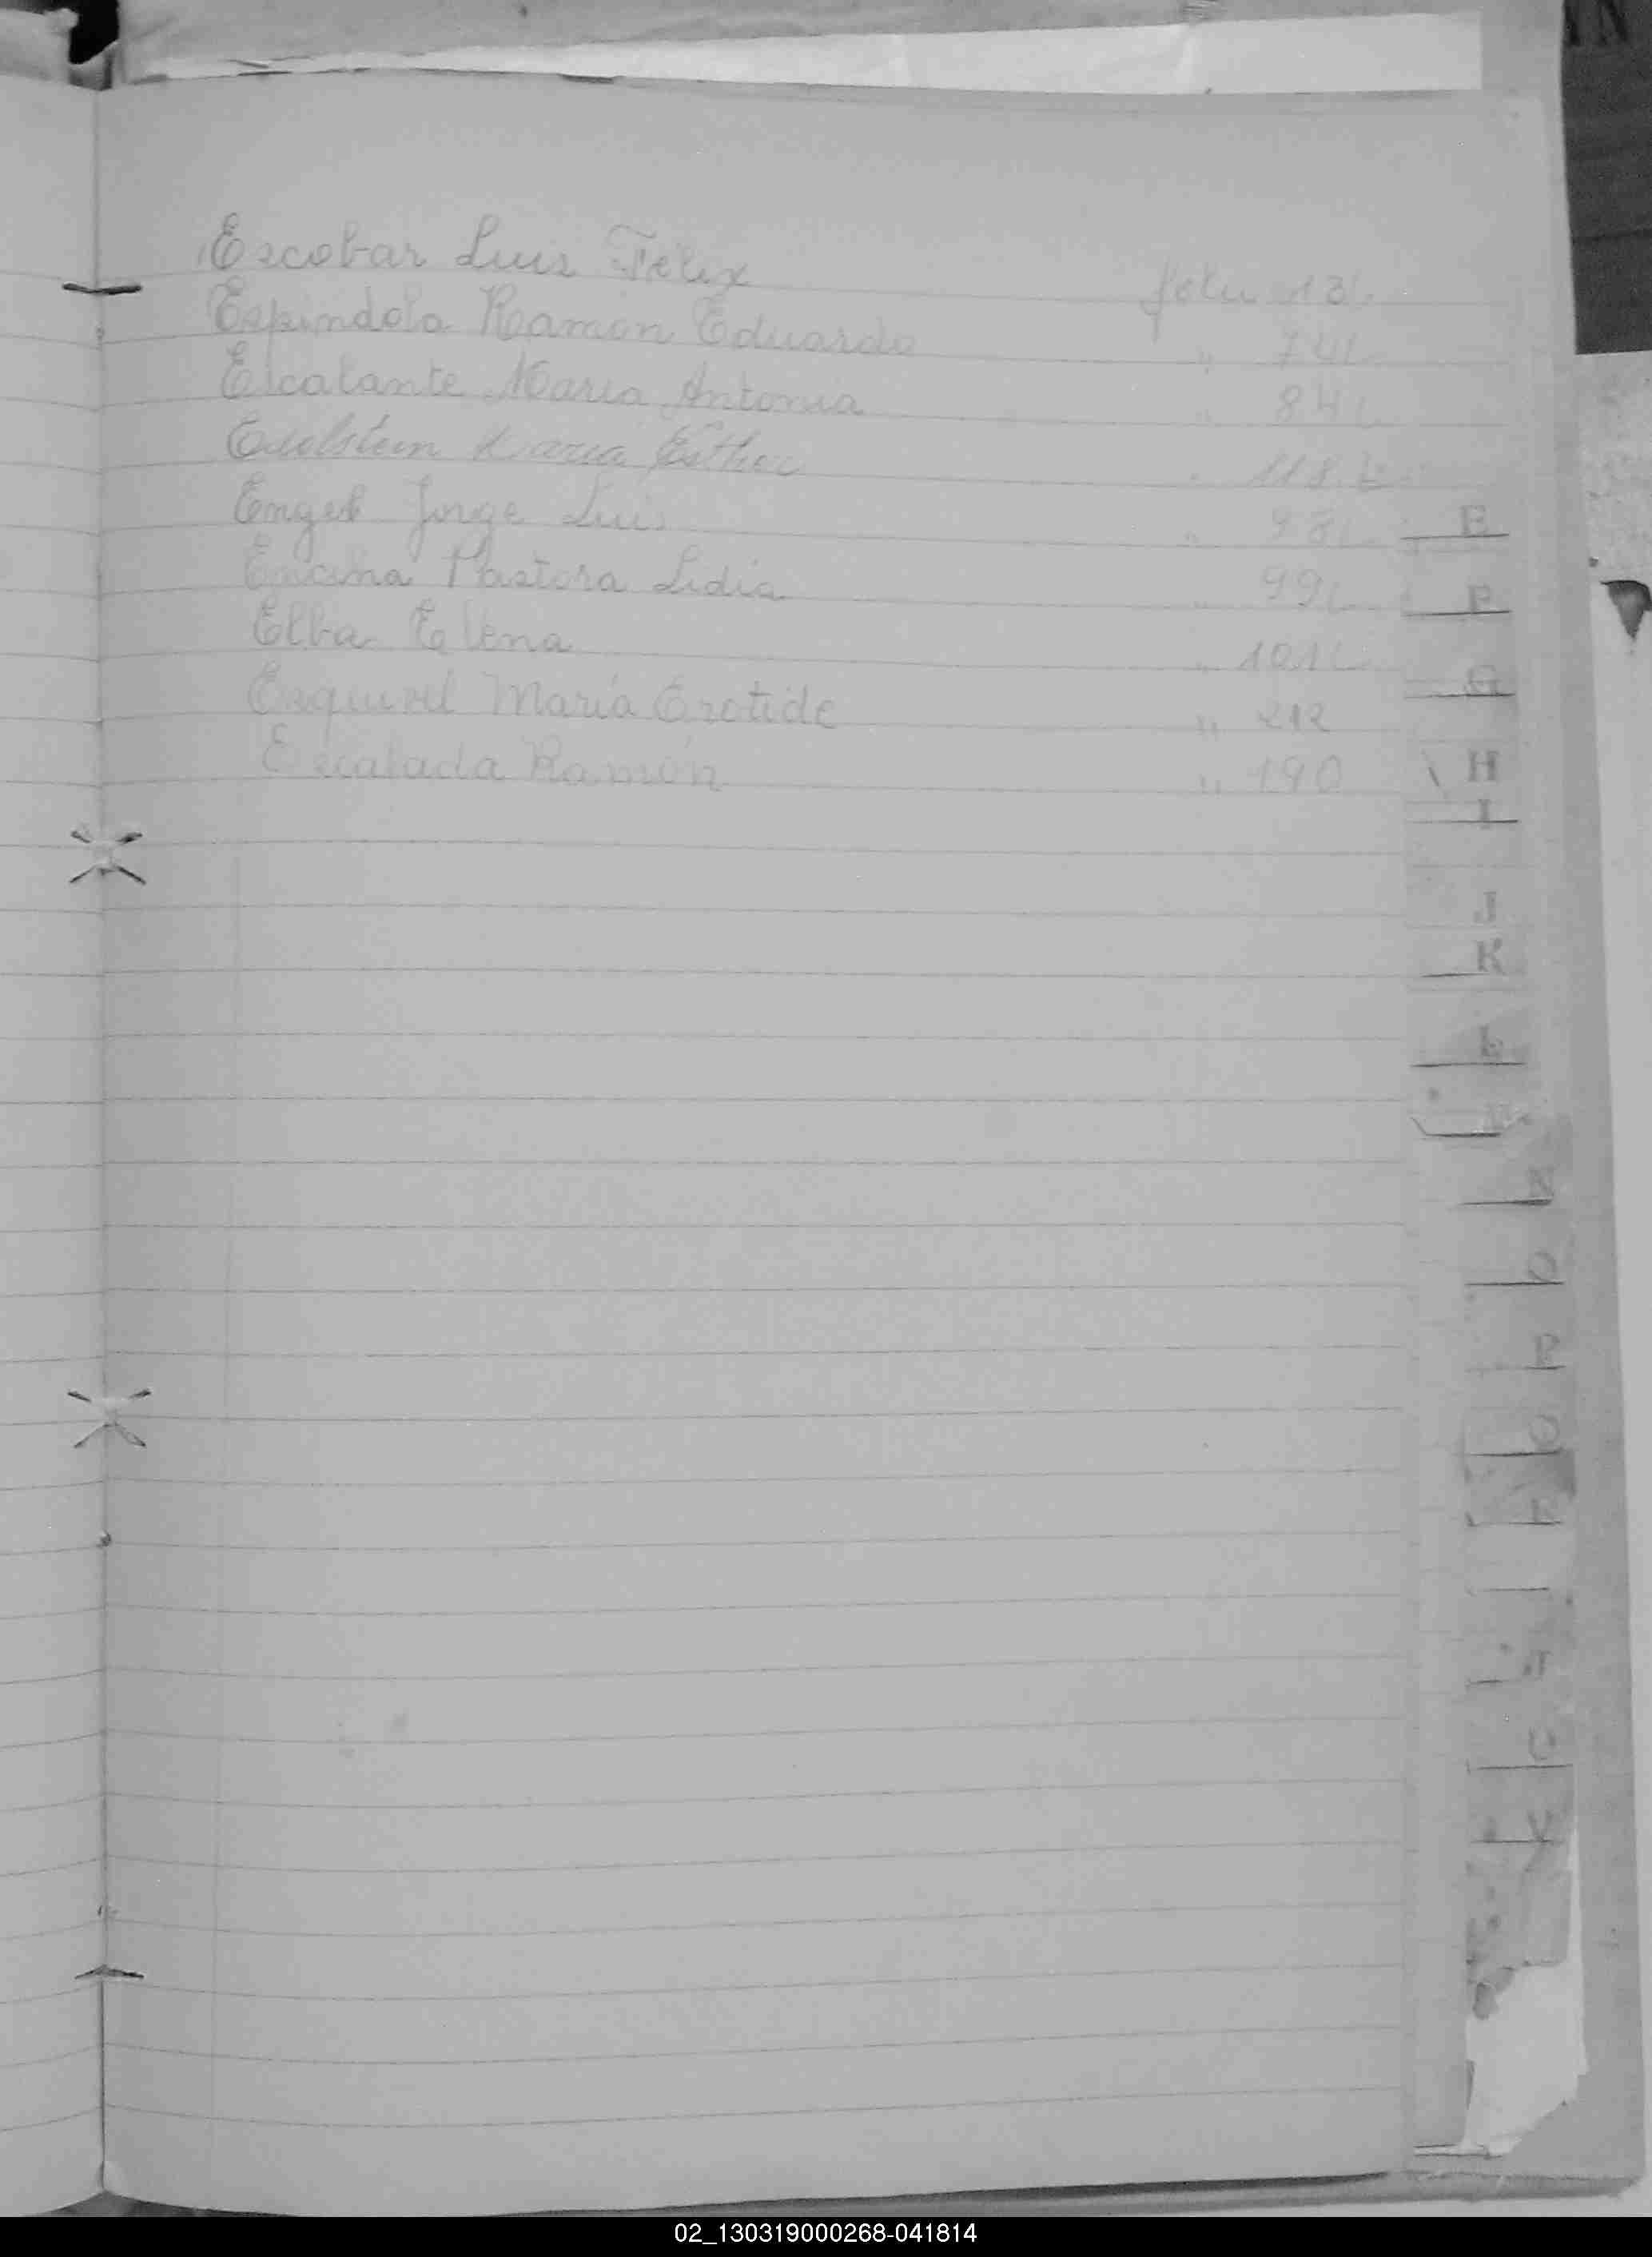 Escobar Luis Felix folio 13
Espindola Ramón Eduardo " 74
Escalante Maria Antonia " 84
Maria Esther 118
Engel Jorge Luis "
Encina Pastora Lidia " 99
Elba Elena " 101
Esquivel María Erotide " 212
Escalada Ramón " 190
E
F
G
H
I
J
K
L
N
O
P
Q
R
T
U
V
02_130319000268-041814